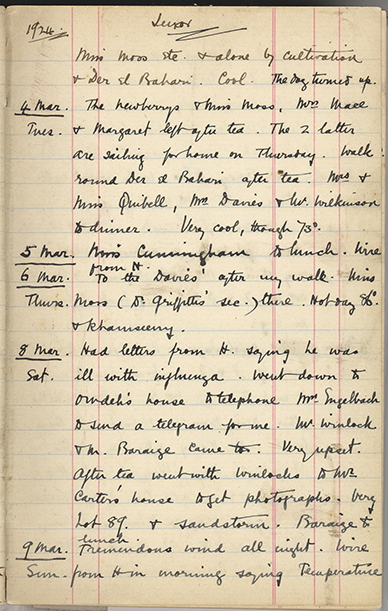 1924. Luxor
Miss Moss etc. & alone by cultivation
& Der el Bahari. Cool. The bag turned up.
4 Mar. The Newberrys & Miss Moss, Mrs Mace
Tues. & Margaret left after tea. The 2 latter
are sailing for home on Thursday. Walk
round Der el Bahari after tea. Mrs &
Miss Quibell, Mr Davies & Mr. Wilkinson
to dinner. Very cool, though 73°.
5 Mar. Miss Cunningham to lunch. Wire
from H.
6 Mar. To the Davies' after my walk. Miss
Thurs. Moss (Dr Griffiths' sec.) there. Hot day 86°
& khamseeny.
8 Mar. Had letters from H. saying he was
Sat. ill with influenza. Went down to
house to telephone Mrs. Engelbach
to send a telegram for me. Mr. Winlock
& M. Baraize came to. Very upset.
After tea went with Winlocks to Mr.
Carter's house to get photographs. Very
hot 89. & sandstorm. Baraize to
lunch.
9 Mar. Tremendous wind all night. Wire
Sun. from H in morning saying Temperature